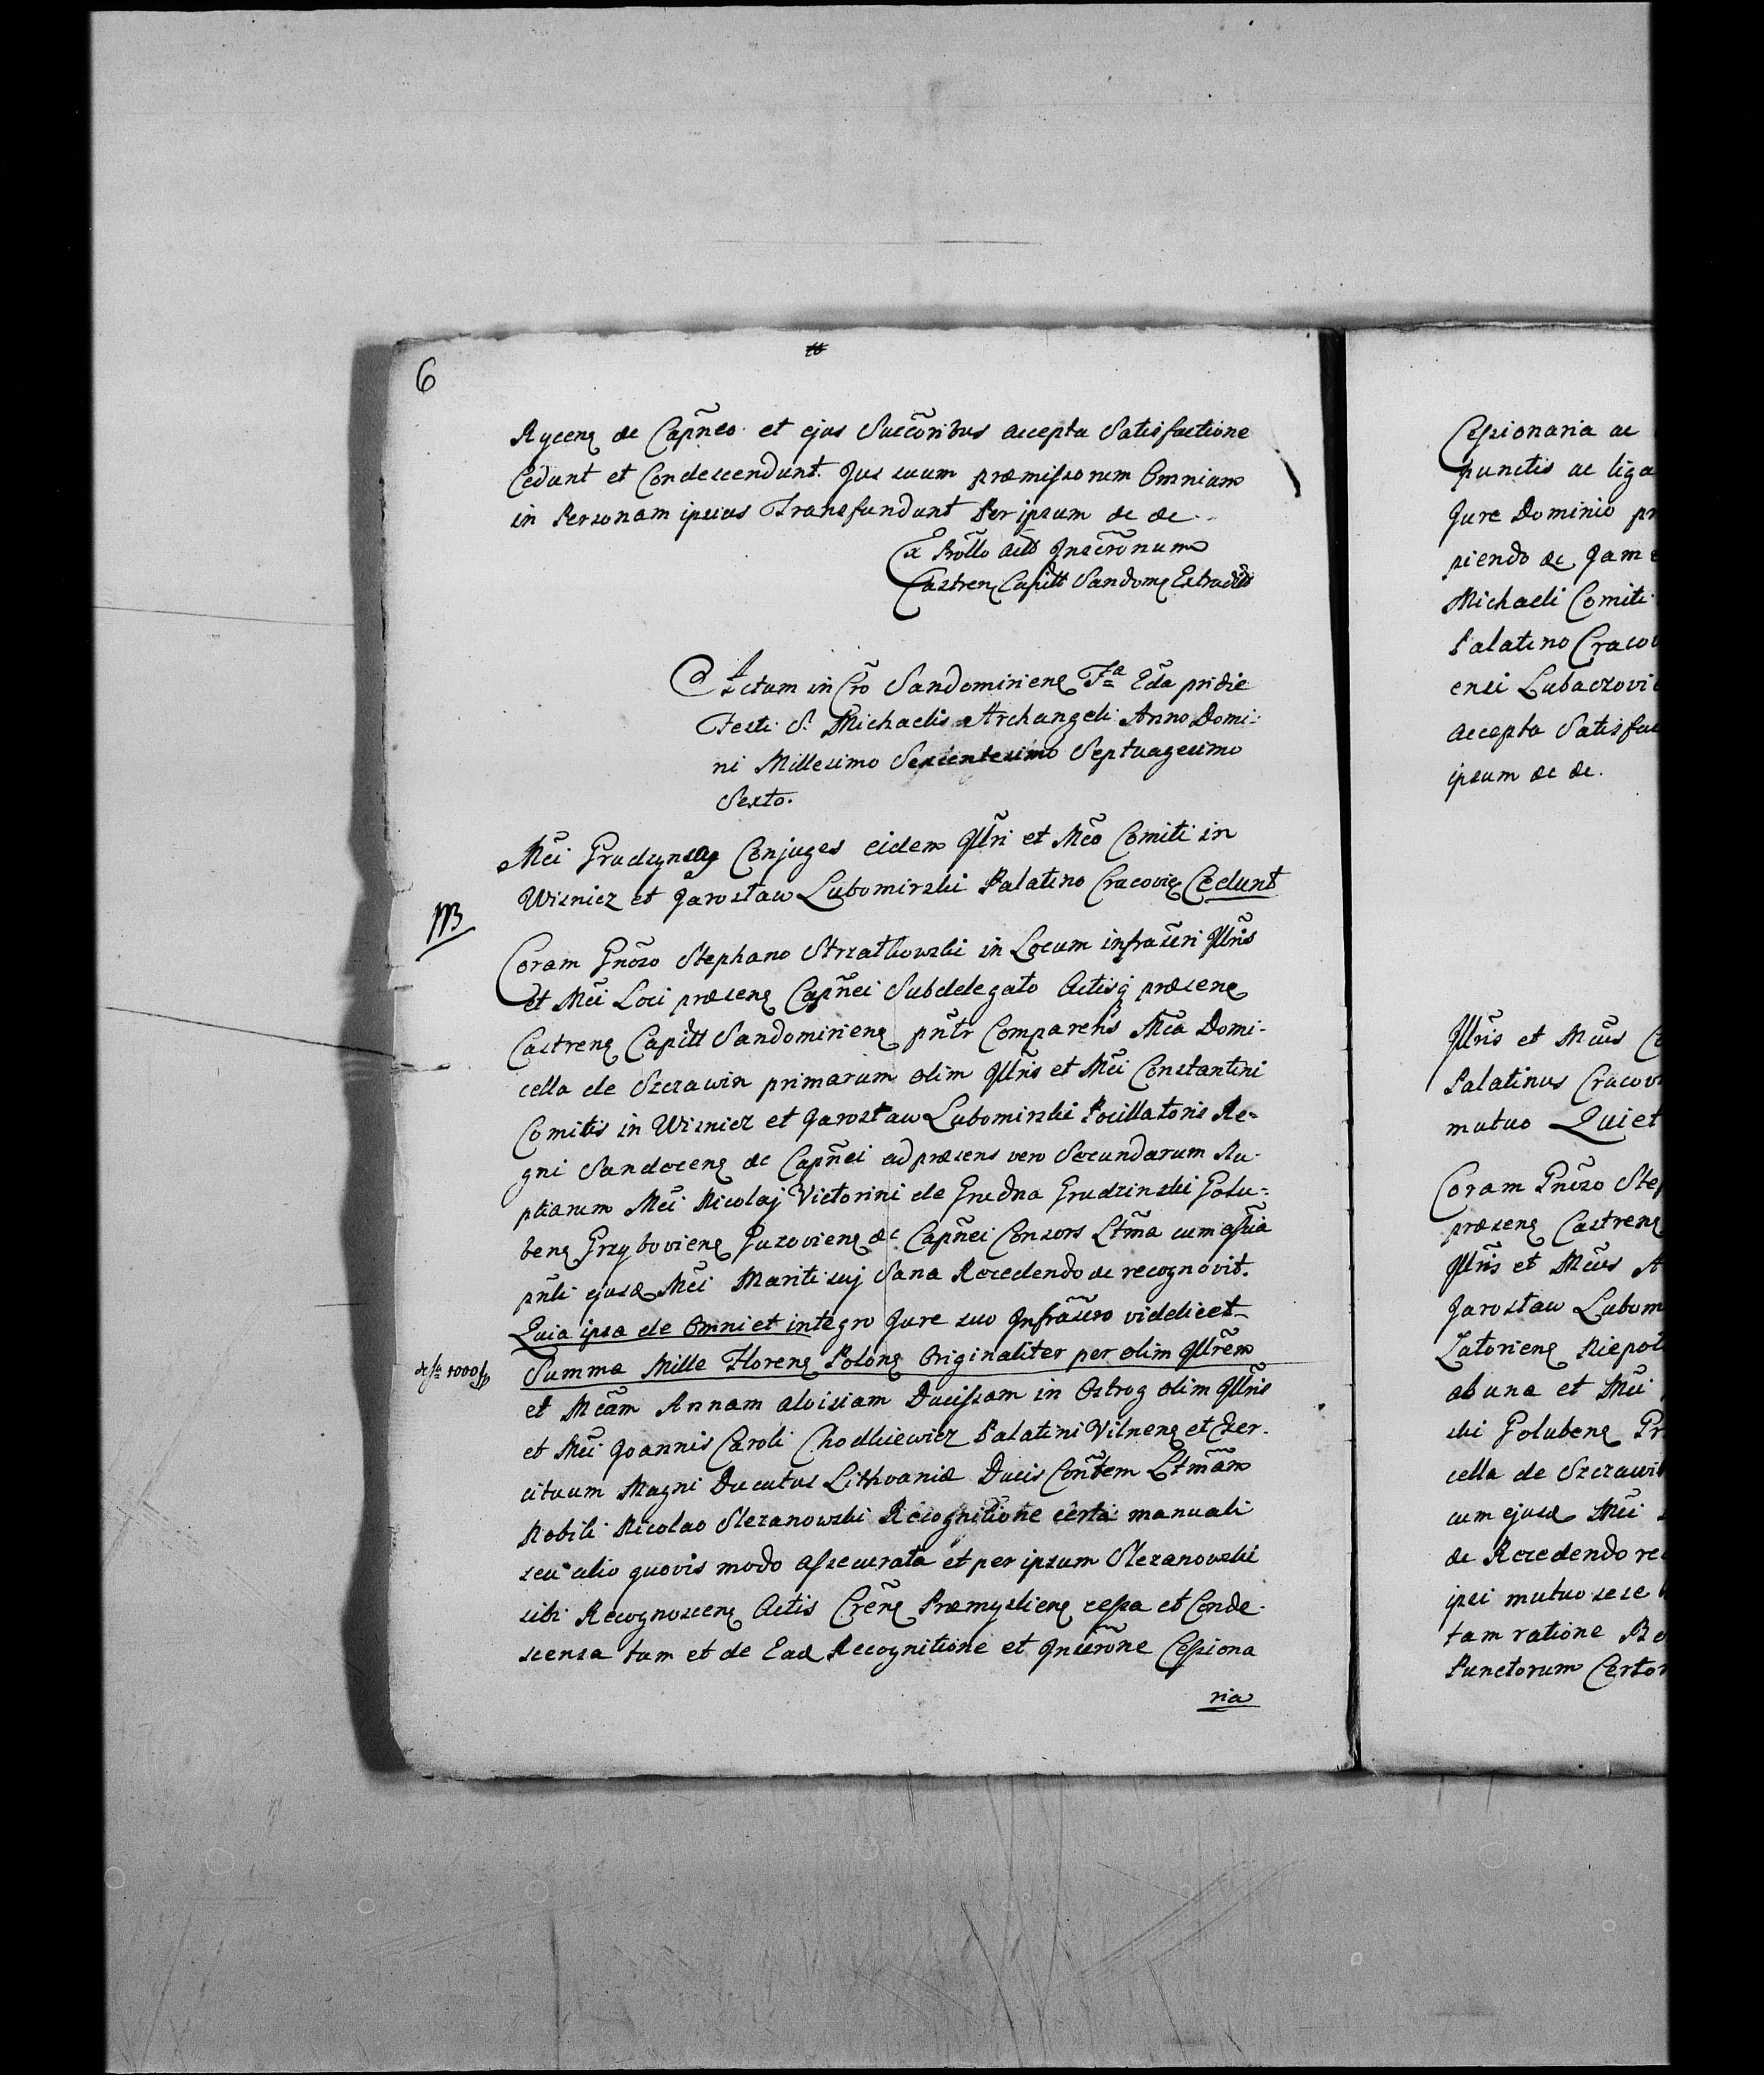 6
Rycens &c Capñeo et ejus Succõribus accepta Satisfactione
Cedunt et Condescendunt Jus suum præmissorum Omnium
in Personam ipsius Transfundunt Per ipsum &c &c
Ex Prõllo Act Inscrõnum
Castren Capitt Sandom Extradit
Actum in Crõ Sandomiriens Fa Eda pridie
Festi S. Michaelis Archangeli Anno Domi-
ni Millesimo Sexcentesimo Septuagesimo
Sexto.
Mci Grudzynscy Conjuges eidem Illri et Mco Comiti in
Wisnicz et Jarosław Lubomirski Palatino Cracovie Cedunt
NB
Coram Gnoso Stephano Strzałkowski in Locum infrascri Illris
et Mci Loci præsens Capñei Subdelegato Actisq præsens
Castrens Capitt Sandomiriens pntr Comparens Mca Domi-
cella de Szczawin primarum olim Illris et Mci Constantini
Comitis in Wisnicz et Jarosław Lubomirski Pocillatoris Re-
gni Sandecens &c Capñei ad præsens vero Secundarum Nu-
ptiarum Mci Nicolaj Victorini de Grudna Grudzinski Golu-
bens Grzyboviens Guzoviens &c Capñei Consors Ltma cum assia
pnli ejusd Mci Mariti sui Sana Recedendo &c recognovit.
Quia ipsa de Omni et integro Jure suo Infrascro videlicet
de sa 1000 fp
Summa Mille Florens Polons Originaliter per olim Illrem
et Mcam Annam Aloisiam Ducissam in Ostrog olim Illris
et Mci Joannis Caroli Chodkiewicz Palatini Vilnens et Exer-
cituum Magni Ducatus Lithvaniæ Ducis Contem Ltmam
Nobili Nicolao Slezanowski Recognitione certa manuali
seu alio quovis modo assecurata et per ipsum Slezanowski
sibi Recognoscens Actis Crens Præmysliens cessa et Conde-
scensa tam et de Ead Recognitione et Inscrone Cessiona
ria
Cessionaria ac
punctis ac liga
Jure Dominio pr
piendo &c Jam
Michaeli Comiti
Palatino Craco
ensi Lubaczovi
accepta Satisfac
ipsum &c &c.
Illris et Mcus Co
Palatinus Cracov
mutuo Quiet
Coram Gnoso Ste
præsens Castrens
Illris et Mcus A
Jarosław Lubom
Zatoriens Niepoł
ab una et Mci
ski Golubens Gr
cella de Szczawi
cum ejusd Mci
&c Recedendo re
ipsi mutuo sese
tam ratione Bo
Punctorum Certor